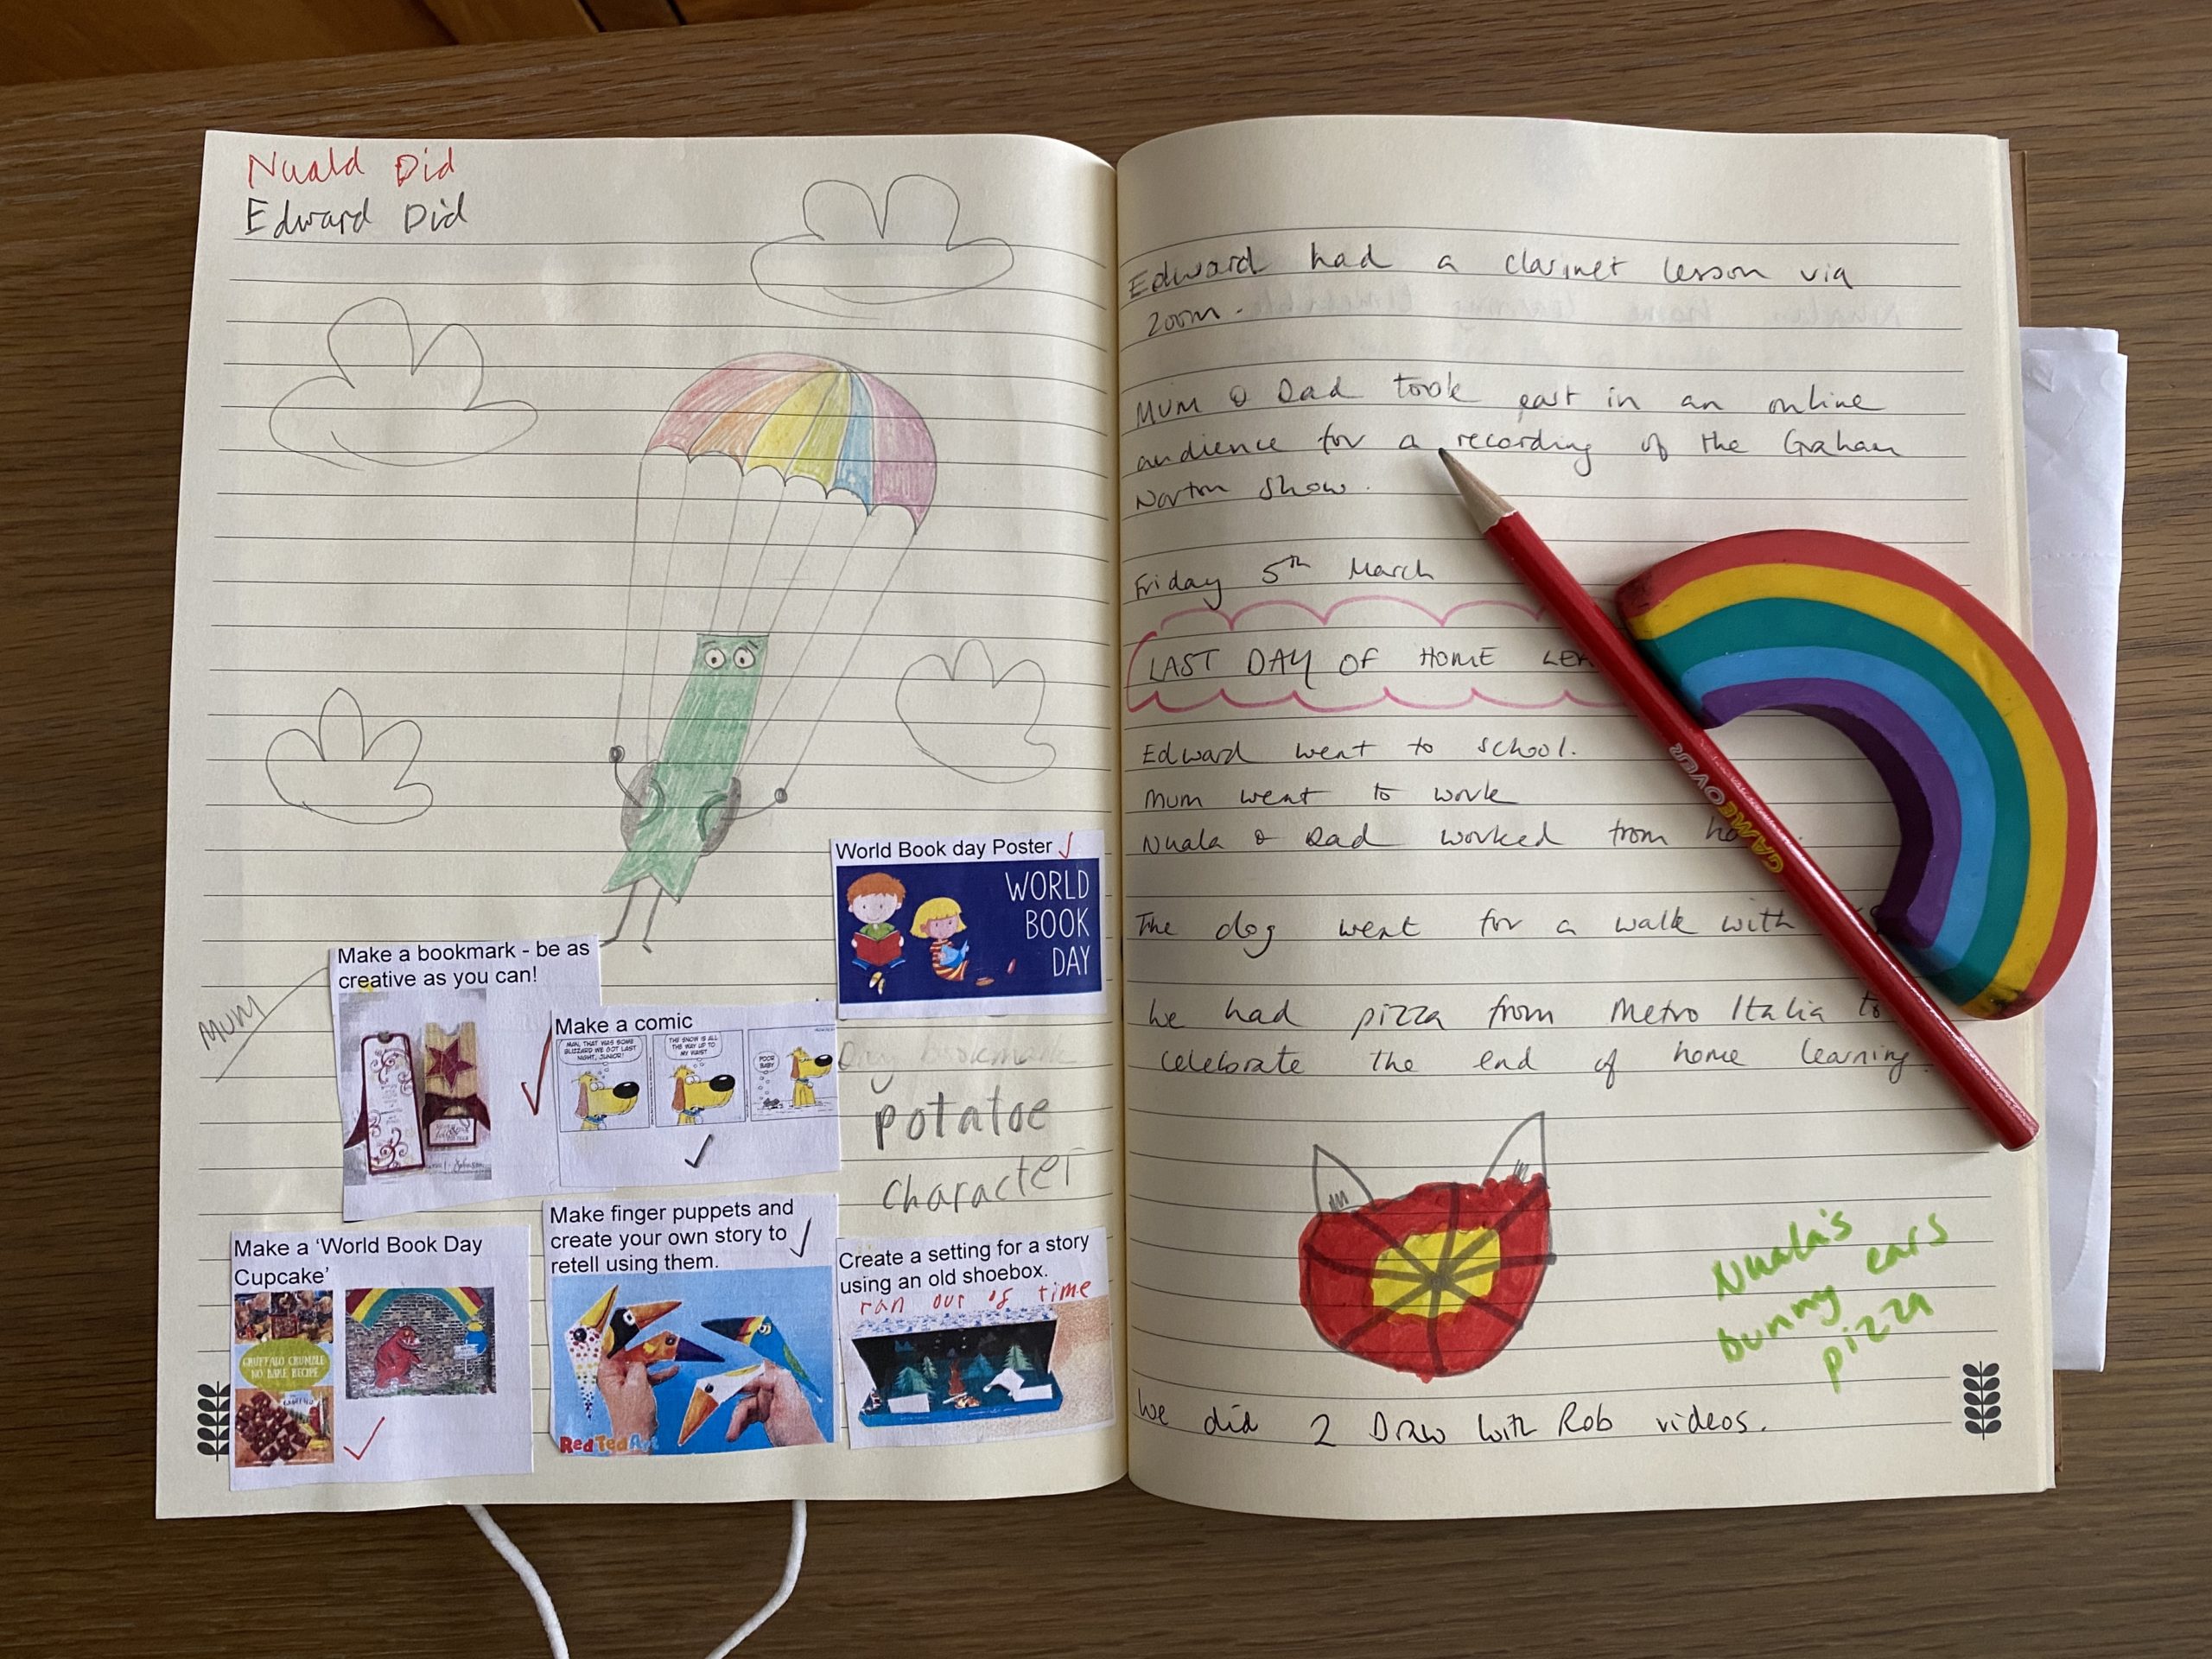 Nuala Did
Edward Did
MUM
World Book day Poster
WORLD
BOOK
DAY
Make a bookmark - be as
creative as you can!
Make a comic
MUM, THAT WAS SOME
BLIZZARD WE GOT LAST
NIGHT, JUNIOR!
THE SNOW IS ALL
THE WAY UP TO
MY WAIST
POOR
BABY
bookmark
potatoe
character
Make a 'World Book Day
Cupcake'
GRUFFALO CRUMBLE
NO BAKE RECIPE
Make finger puppets and
create your own story to
retell using them.
RedTedArt
Create a setting for a story
using an old shoebox.
ran out of time
Edward had a clarinet lesson via
Zoom.
Mum & Dad took part in an online
audience for a recording of the Graham
Norton Show.
Friday 5th March
LAST DAY OF HOME
Edward went to school.
Mum went to work
Nuala & Dad worked from
The dog went for a walk with
We had pizza from Metro Italia to
celebrate the end of home learning.
GAME OVER
Nuala's
bunny ears
pizza
We did 2 Draw With Rob videos.